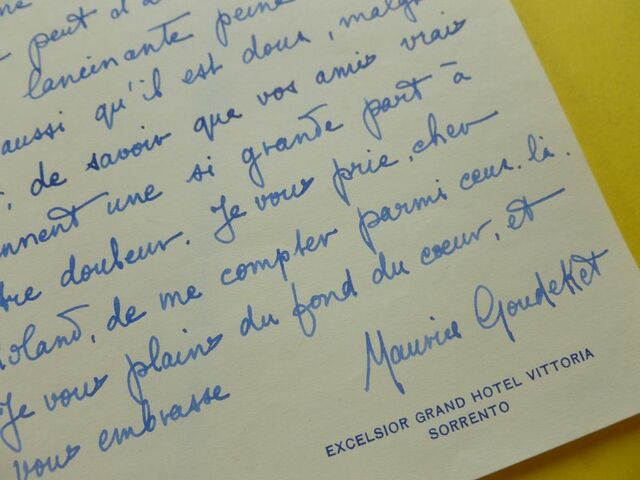 peut d'a
lancinante peine
aussi qu'il est doux, malgr
, de savoir que vos amis vrais
ennent une si grande part à
tre douleur. Je vous prie, cher
Roland, de me compter parmi ceux-là.
Je vous plains du fond du cœur, et
vous embrasse
Maurice Goudeket
EXCELSIOR GRAND HOTEL VITTORIA
SORRENTO